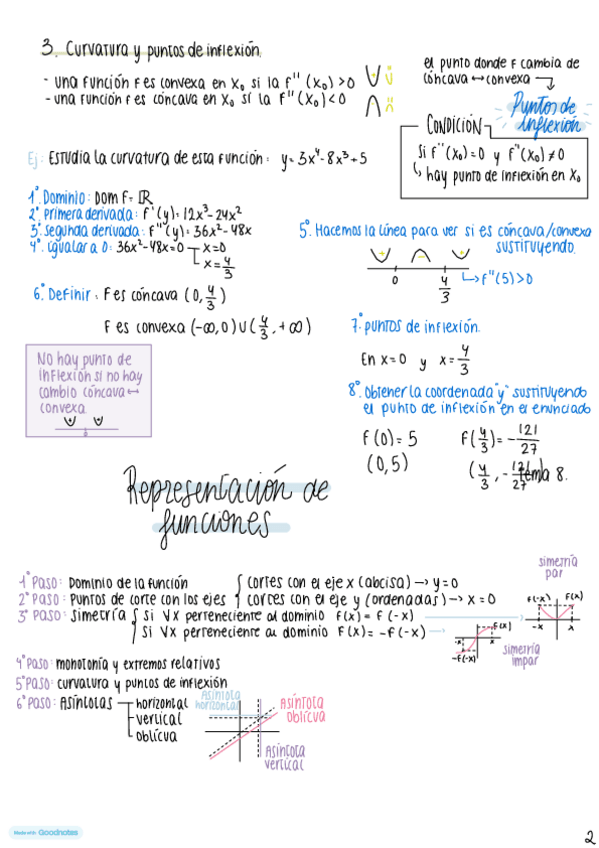 3. Curvatura y puntos de inflexión.
- una función f es convexa en x₀ si la f''(x₀) > 0
- una función f es cóncava en x₀ si la f''(x₀) < 0
el punto donde f cambia de
cóncava ↔ convexa
Puntos de
inflexión
CONDICIÓN
Si f''(x₀) = 0 y f'''(x₀) ≠ 0
↳ hay punto de inflexión en x₀
Ej: Estudia la curvatura de esta función: y = 3x⁴ - 8x³ + 5
1º. Dominio: Dom f = ℝ
2º. primera derivada: f'(y) = 12x³ - 24x²
3º. segunda derivada: f''(y) = 36x² - 48x
4º. igualar a 0: 36x² - 48x = 0 x = 0
x = 4/3
5º. Hacemos la línea para ver si es cóncava/convexa
sustituyendo.
0 4/3 ↳ f''(5) > 0
6º. Definir: f es cóncava (0, 4/3)
f es convexa (-∞, 0) ∪ (4/3, +∞)
No hay punto de
inflexión si no hay
cambio cóncava ↔
convexa
0
7º. puntos de inflexión.
En x = 0 y x = 4/3
8º. Obtener la coordenada "y" sustituyendo
el punto de inflexión en el enunciado
f(0) = 5 f(4/3) = -121/27
(0, 5) (4/3, -121/27)
tema 8.
Representación de
funciones
1º Paso: Dominio de la función
2º Paso: Puntos de corte con los ejes { cortes con el eje x (abcisa) → y = 0
cortes con el eje y (ordenadas) → x = 0
3º Paso: Simetría { Si ∀x perteneciente al dominio f(x) = f(-x)
Si ∀x perteneciente al dominio f(x) = -f(-x)
simetría
par
f(-x) f(x)
-x x
f(x)
-x x
-f(-x)
simetría
impar
4º Paso: monotonía y extremos relativos
5º Paso: curvatura y puntos de inflexión
6º Paso: Asíntotas horizontal
vertical
oblicua
Asíntota
horizontal
Asíntota
oblicua
Asíntota
vertical
Made with Goodnotes
2